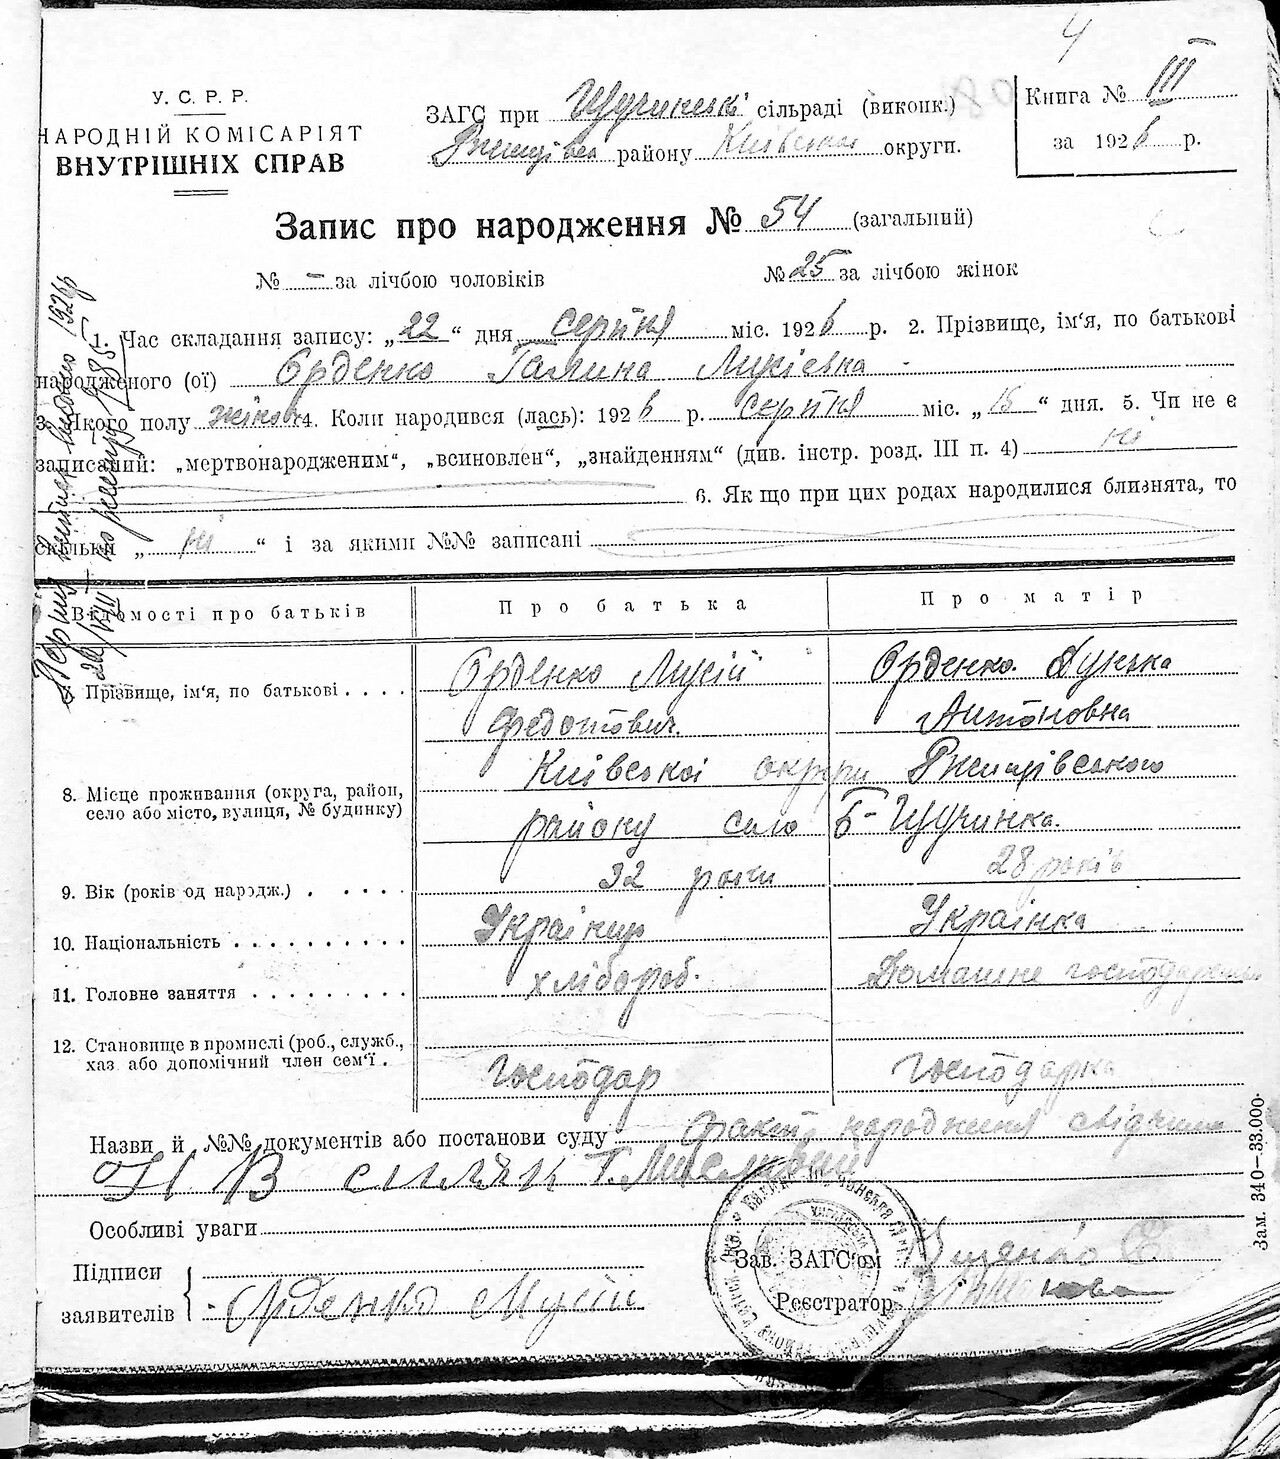 4
У. С. Р. Р.
НАРОДНІЙ КОМІСАРІЯТ
ВНУТРІШНІХ СПРАВ
ЗАГС при Щучинській сільраді (виконк.)
району Київської округи.
Книга № III
за 1926 р.
Запис про народження № 54 (загальний)
№ – за лічбою чоловіків № 25 за лічбою жінок
1. Час складання запису: „22“ дня серпня міс. 1926 р. 2. Прізвище, ім'я, по батькові
народженого (ої) Орденко Галина Мусіевна
3. Якого полу жіноч. 4. Коли народився (лась): 1926 р. серпня міс. „15“ дня. 5. Чи не є
записаний: „мертвонародженим“, „всиновлен“, „знайденням“ (див. інстр. розд. III п. 4) ні
6. Як що при цих родах народилися близнята, то
скільки „ні“ і за якими №№ записані
Відомості про батьків Про батька Про матір
7. Прізвище, ім'я, по батькові . . . . Орденко Мусій Орденко
Федотович. Антоновна
8. Місце проживання (округа, район, село або місто, вулиця, № будинку) Київської округи Ржищівського
району село Б-Щучинка.
9. Вік (років од народж.) . . . . . 32 роки 28 років
10. Національність . . . . . . . . . . Українець Українка
11. Головне заняття . . . . . . . . . хлібороб. Домашне
12. Становище в промислі (роб., служб., хаз або допомічний член сем'ї . господар господарка
Назви й №№ документів або постанови суду факт народження
Особливі уваги
Підписи
заявителів Орденко Мусій
Зав. ЗАГС'ом
Реєстратор
Зам. 340—33.000.